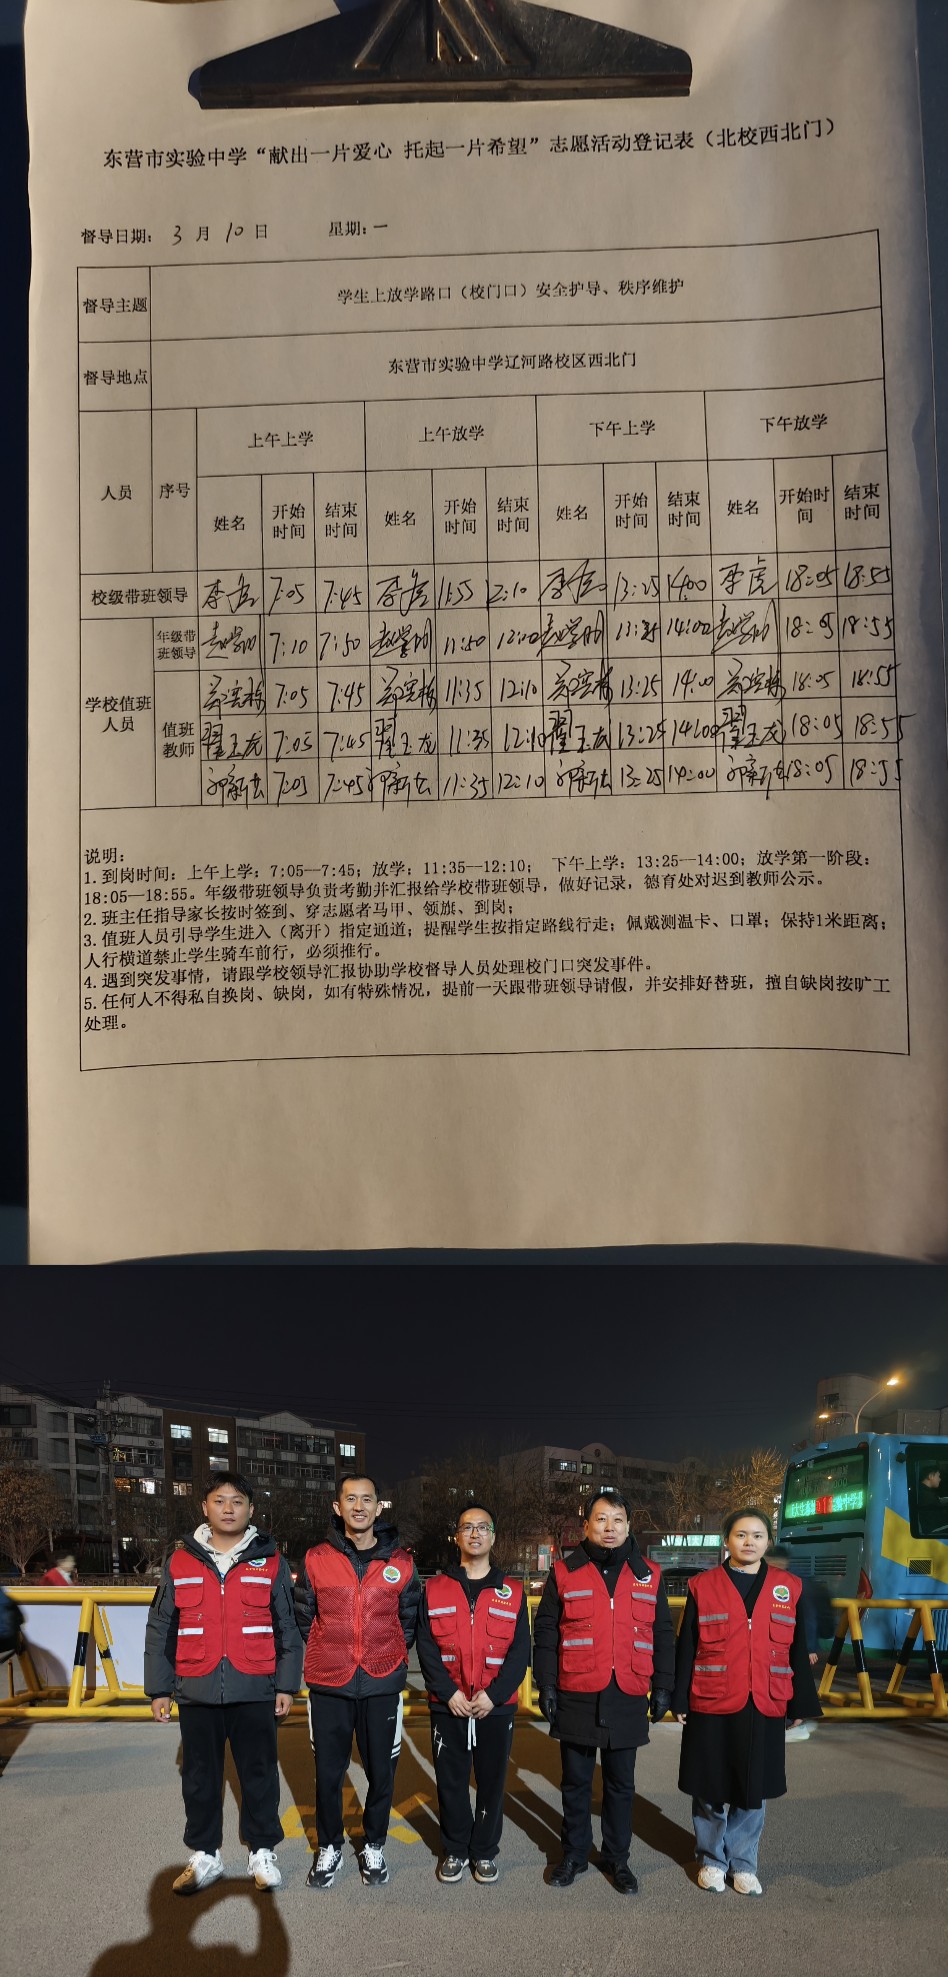 东营市实验中学“献出一片爱心 托起一片希望”志愿活动登记表（北校西北门）
督导日期： 3 月 10 日 星期：一
督导主题 学生上放学路口（校门口）安全护导、秩序维护
督导地点 东营市实验中学辽河路校区西北门
人员 序号 上午上学 上午放学 下午上学 下午放学
姓名 开始时间 结束时间 姓名 开始时间 结束时间 姓名 开始时间 结束时间 姓名 开始时间 结束时间
校级带班领导 李虎 7:05 7:45 李虎 11:35 12:10 李虎 13:25 14:00 李虎 18:05 18:55
学校值班人员 年级带班领导 7:10 7:50 11:50 14:00 18:55
值班教师 7:05 7:45 11:35 12:10 13:25 14:00 18:05 18:55
翟玉龙 7:05 7:45 翟玉龙 11:35 12:10 翟玉龙 13:25 14:00 翟玉龙 18:05 18:55
7:05 7:45 11:35 12:10 13:25 14:00 18:05 18:55
说明：
1. 到岗时间：上午上学：7:05—7:45；放学：11:35—12:10； 下午上学：13:25—14:00；放学第一阶段：
18:05—18:55。年级带班领导负责考勤并汇报给学校带班领导，做好记录，德育处对迟到教师公示。
2. 班主任指导家长按时签到、穿志愿者马甲、领旗、到岗；
3. 值班人员引导学生进入（离开）指定通道；提醒学生按指定路线行走；佩戴测温卡、口罩；保持1米距离；
人行横道禁止学生骑车前行，必须推行。
4. 遇到突发事情，请跟学校领导汇报协助学校督导人员处理校门口突发事件。
5. 任何人不得私自换岗、缺岗，如有特殊情况，提前一天跟带班领导请假，并安排好替班，擅自缺岗按旷工
处理。